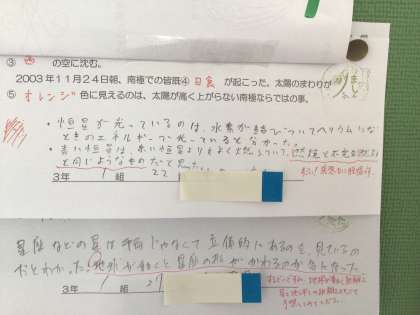 ③ 西 の空に沈む。
2003年11月24日朝、南極での皆既④ 日食 が起こった。太陽のまわりが
⑤ オレンジ 色に見えるのは、太陽が高く上がらない南極ならではの事。
・恒星が光っているのは、水素が結びついてヘリウムにな
るときのエネルギーで光っているとわかった。
・青い恒星は、赤い恒星よりもよく燃えていて、燃焼と不完全燃焼
と同じようなものだと思った。
3年 1 組 22
星座などの星は平面じゃなくて立体的にあるのを、見ているの
だとわかった。地球が動くと星座の形がかわるのか気になった。
3年 1 組 27